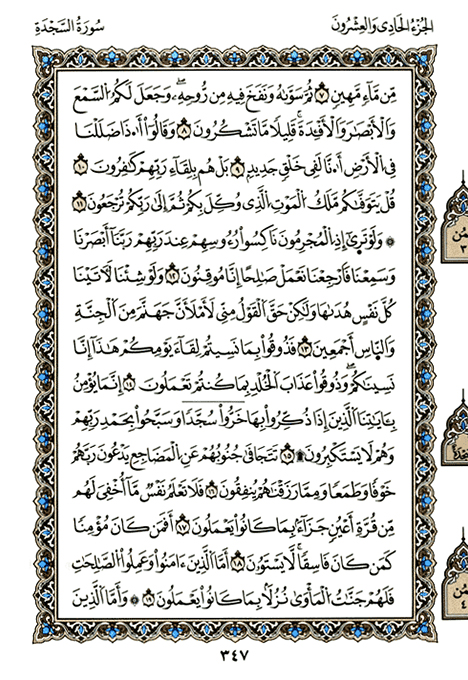 الجُزْءُ الحَادِى وَالعِشْرُونَ
سُورَةُ السَّجْدَةِ
مِّن مَّآءٍ مَّهِينٍ ٧ ثُمَّ سَوَّىٰهُ وَنَفَخَ فِيهِ مِن رُّوحِهِۦ وَجَعَلَ لَكُمُ السَّمْعَ
وَالْأَبْصَٰرَ وَالْأَفْـِٔدَةَ قَلِيلًا مَّا تَشْكُرُونَ ٨ وَقَالُوٓا۟ أَ.ذَا ضَلَلْنَا
فِى الْأَرْضِ إِنَّا لَفِى خَلْقٍ جَدِيدٍ ٩ بَلْ هُم بِلِقَآءِ رَبِّهِمْ كَٰفِرُونَ ١٠
قُلْ يَتَوَفَّىٰكُم مَّلَكُ الْمَوْتِ الَّذِى وُكِّلَ بِكُمْ ثُمَّ إِلَىٰ رَبِّكُمْ تُرْجَعُونَ ١١
۞ وَلَوْ تَرَىٰٓ إِذِ الْمُجْرِمُونَ نَاكِسُوا۟ رُءُوسِهِمْ عِندَ رَبِّهِمْ رَبَّنَآ أَبْصَرْنَا
وَسَمِعْنَا فَارْجِعْنَا نَعْمَلْ صَٰلِحًا إِنَّا مُوقِنُونَ ١٢ وَلَوْ شِئْنَا لَأٓتَيْنَا
كُلَّ نَفْسٍ هُدَىٰهَا وَلَٰكِنْ حَقَّ الْقَوْلُ مِنِّى لَأَمْلَأَنَّ جَهَنَّمَ مِنَ الْجِنَّةِ
وَالنَّاسِ أَجْمَعِينَ ١٣ فَذُوقُوا۟ بِمَا نَسِيتُمْ لِقَآءَ يَوْمِكُمْ هَٰذَآ إِنَّا
نَسِينَٰكُمْ وَذُوقُوا۟ عَذَابَ الْخُلْدِ بِمَا كُنتُمْ تَعْمَلُونَ ١٤ إِنَّمَا يُؤْمِنُ
بِـَٔايَٰتِنَا الَّذِينَ إِذَا ذُكِّرُوا۟ بِهَا خَرُّوا۟ سُجَّدًا وَسَبَّحُوا۟ بِحَمْدِ رَبِّهِمْ
وَهُمْ لَا يَسْتَكْبِرُونَ ۩ ١٥ تَتَجَافَىٰ جُنُوبُهُمْ عَنِ الْمَضَاجِعِ يَدْعُونَ رَبَّهُمْ
خَوْفًا وَطَمَعًا وَمِمَّا رَزَقْنَٰهُمْ يُنفِقُونَ ١٦ فَلَا تَعْلَمُ نَفْسٌ مَّآ أُخْفِىَ لَهُم
مِّن قُرَّةِ أَعْيُنٍ جَزَآءً بِمَا كَانُوا۟ يَعْمَلُونَ ١٧ أَفَمَن كَانَ مُؤْمِنًا
كَمَن كَانَ فَاسِقًا لَّا يَسْتَوُۥنَ ١٨ أَمَّا الَّذِينَ ءَامَنُوا۟ وَعَمِلُوا۟ الصَّٰلِحَٰتِ
فَلَهُمْ جَنَّٰتُ الْمَأْوَىٰ نُزُلًا بِمَا كَانُوا۟ يَعْمَلُونَ ١٩ ۞ وَأَمَّا الَّذِينَ
٣٤٧